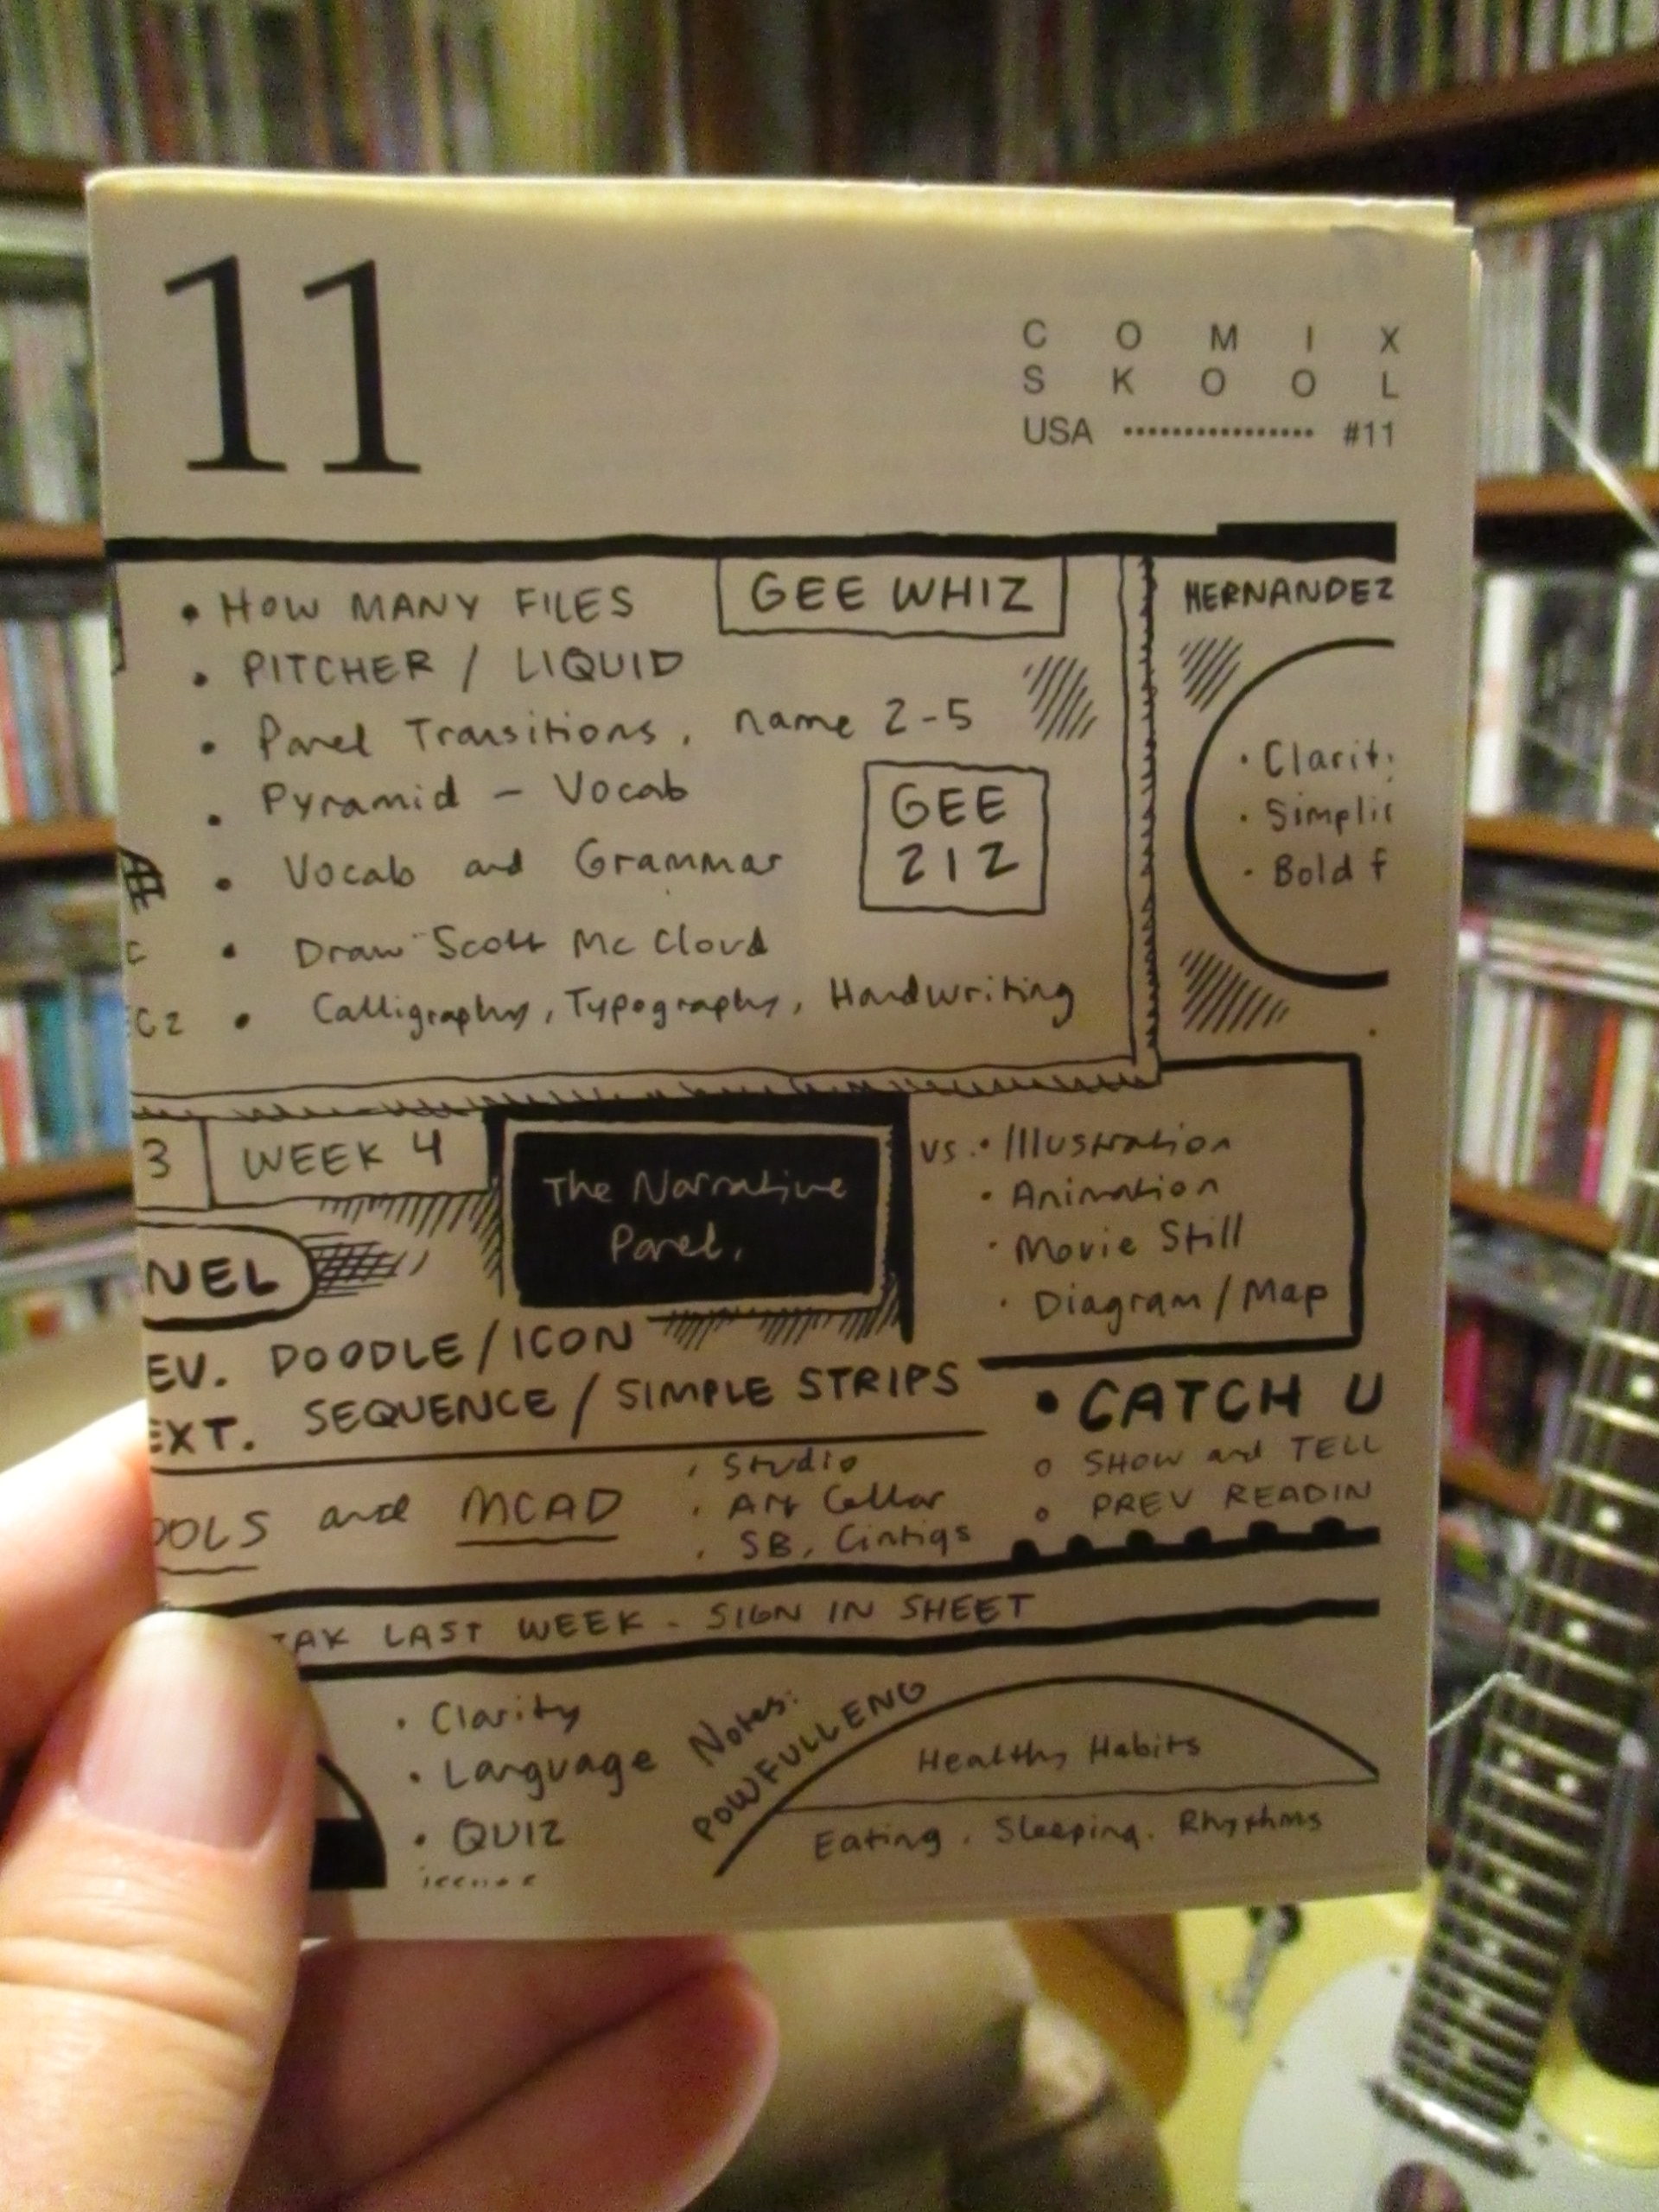 11
COMIX
SKOOL
USA ................ #11
• HOW MANY FILES
GEE WHIZ
• PITCHER / LIQUID
• Panel Transitions, name 2-5
• Pyramid - Vocab
• Vocab and Grammar
GEE
212
• Draw Scott McCloud
• Calligraphy, Typography, Handwriting
C
C2
HERNANDEZ
• Clarit
• Simplic
• Bold f
3
WEEK 4
The Narrative
Panel.
vs. • Illustration
• Animation
• Movie Still
• Diagram / Map
NEL
EV. DOODLE / ICON
EXT. SEQUENCE / SIMPLE STRIPS
OOLS and MCAD
• Studio
• Art Cellar
• SB, Cintiqs
• CATCH U
o SHOW and TELL
o PREV READIN
LAST WEEK - SIGN IN SHEET
• Clarity
• Language
• QUIZ
Notes:
POWFULL ENG
Healthy Habits
Eating, Sleeping, Rhythms